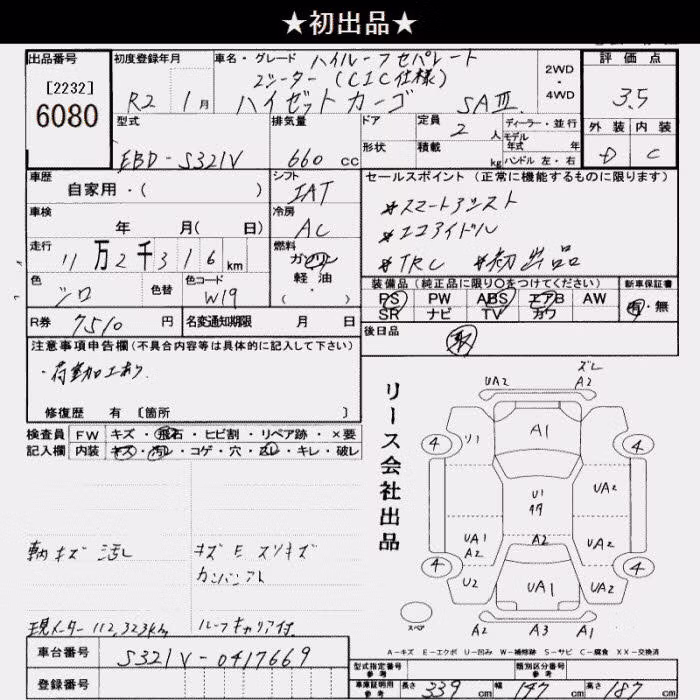 ★初出品★
出品番号 [2232] 6080
初度登録年月 R2 1月
車名・グレード ハイルーフセパレート
2シーター (CIC仕様)
ハイゼットカーゴ SAⅢ
2WD・4WD
評価点 3.5
外装 D 内装 C
型式 EBD-S321V
排気量 660 cc
ドア 形状
定員 2 人
積載 kg
ディーラー・並行
モデル年式 年式
ハンドル 左・右
車歴 自家用・( )
シフト IAT
セールスポイント (正常に機能するものに限ります)
*スマートアシスト
*エコアイドル
*TRC *初出品
車検 年 月( 日)
冷房 AC
走行 11万2千316 km
燃料 ガソリン・軽油・( )
色 シロ 色替
色コード W19
装備品(純正品に限り○をつけてください)
PS PW ABS エアB AW
SR ナビ TV カワ
新車保証書 有・無
R券 7510 円
名変通知期限 月 日
後日品 取
注意事項申告欄(不具合内容等は具体的に記入して下さい)
・荷室加工あり
修復歴 有 [箇所 ]
検査員記入欄
FW キズ・飛石・ヒビ割・リペア跡・×要
内装 キズ・汚レ・コゲ・穴・スレ・キレ・破レ
車内キズ 汚レ
キズ E スリキズ
カンバンアト
現メーター 112,323km
ルーフキャリア付
リース会社出品
UA2 ズレ A2
4 リ1 A1 4
U1 UA2
UA1 A2 A2 UA2
4 U2 UA1 UA2 4
スペア A2 A3 A1
A-キズ E-エクボ U-凹み W-補修跡 S-サビ C-腐食 XX-交換済
車台番号 S321V-0417669
登録番号
型式指定番号 参考
類別区分番号 参考
車庫証明用 参考 長さ 339 cm 幅 147 cm 高さ 187 cm